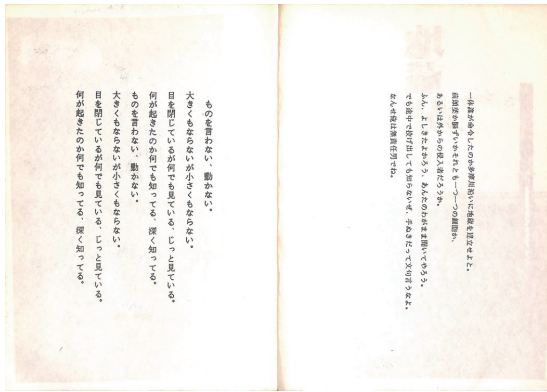 一体誰が命令したのか多摩川沿いに地獄を建立せよと。
前頭葉か脳ずいかそれとも一つ一つの細胞か、
あるいは外からの侵入者だろうか。
ふん、よしきたよかろう、あんたのわがまま聞いてやろう。
でも途中で投げ出しても知らないぜ、手ぬきだって文句言うなよ。
なんせ俺は無責任男でね。
ものを言わない、動かない。
大きくもならないが小さくもならない。
目を閉じているが何でも見ている、じっと見ている。
何が起きたのか何でも知ってる、深く知ってる。
ものを言わない、動かない。
大きくもならないが小さくもならない。
目を閉じているが何でも見ている、じっと見ている。
何が起きたのか何でも知ってる、深く知ってる。